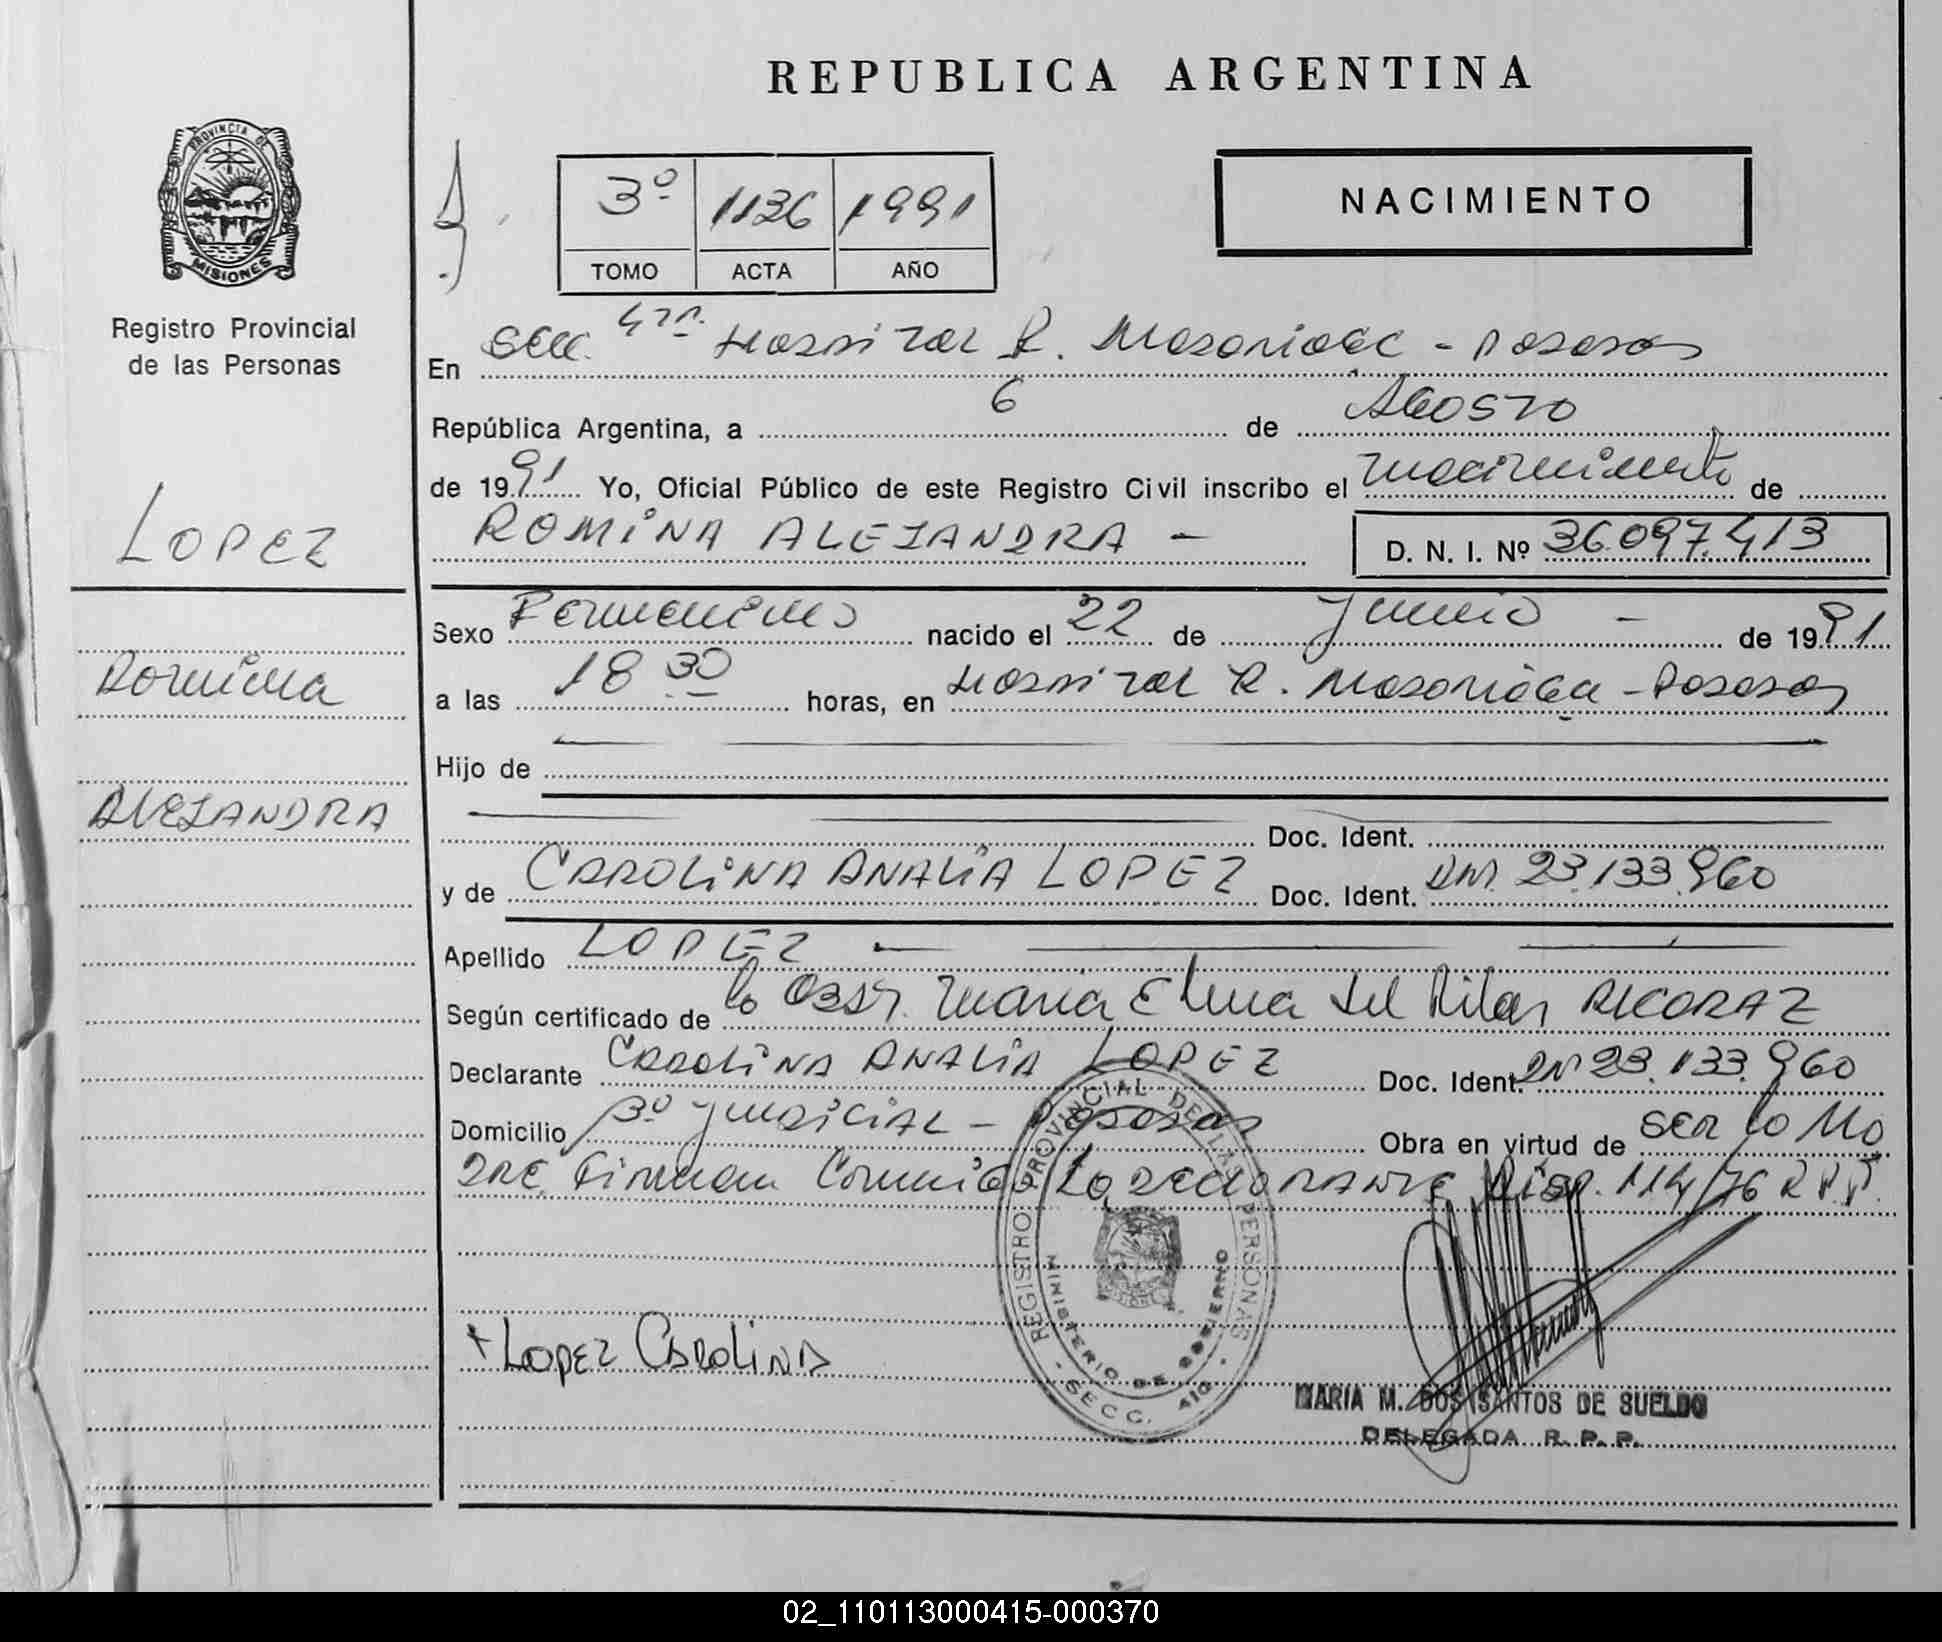 REPUBLICA ARGENTINA
PROVINCIA DE
MISIONES
Registro Provincial
de las Personas
3º 1136 1991
TOMO ACTA AÑO
NACIMIENTO
En Secc. 4ta. Hospital R. Madariaga - Posadas
República Argentina, a 6 de Agosto
de 1991 Yo, Oficial Público de este Registro Civil inscribo el nacimiento de
LOPEZ
ROMINA ALEJANDRA - D. N. I. Nº 36.097.413
Sexo Femenino nacido el 22 de Junio - de 1991
Romina
a las 18 30 horas, en Hospital R. Madariaga - Posadas
Hijo de
ALEJANDRA
Doc. Ident.
y de CAROLINA ANALIA LOPEZ Doc. Ident. DNI 23.133.960
Apellido LOPEZ
Según certificado de la Obst. Maria Elena del Pilar
Declarante CAROLINA ANALIA LOPEZ Doc. Ident. DNI 23.133.960
Domicilio Bº Judicial - Posadas Obra en virtud de ser la Ma
dre. Firman Conmigo La declarante Disp. 114/76 R.P.P.
REGISTRO PROVINCIAL DE LAS PERSONAS
MINISTERIO DE GOBIERNO
- SECC. 4ta. -
+ LOPEZ CAROLINA
MARIA M. DOS SANTOS DE SUELDO
DELEGADA R. P. P.
02_110113000415-000370